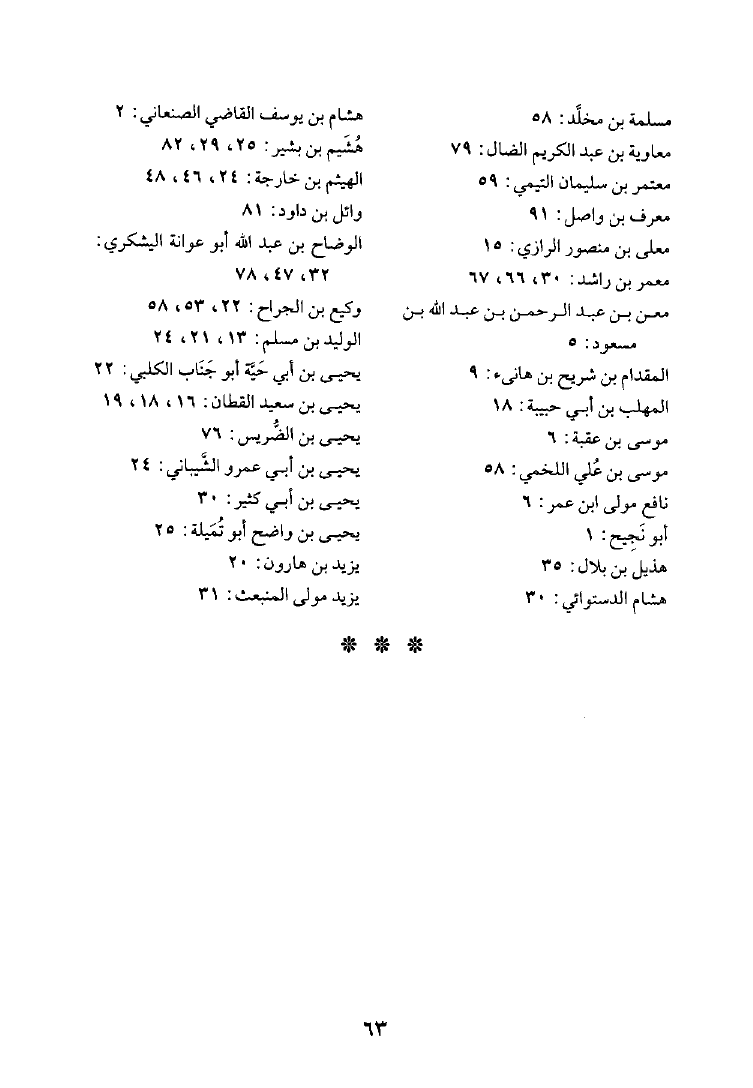 مسلمة بن مخلَّد: ٥٨
معاوية بن عبد الكريم الضال: ٧٩
معتمر بن سليمان التيمي: ٥٩
معرف بن واصل: ٩١
معلى بن منصور الرازي: ١٥
معمر بن راشد: ٣٠، ٦٦، ٦٧
معـن بـن عبـد الـرحمـن بـن عبـد الله بـن
مسعود: ٥
المقدام بن شريح بن هانىء: ٩
المهلب بن أبي حبيبة: ١٨
موسى بن عقبة: ٦
موسى بن عُلي اللخمي: ٥٨
نافع مولى ابن عمر: ٦
أبو نَجِيح: ١
هذيل بن بلال: ٣٥
هشام الدستوائي: ٣٠
هشام بن يوسف القاضي الصنعاني: ٢
هُشَيم بن بشير: ٢٥، ٢٩، ٨٢
الهيثم بن خارجة: ٢٤، ٤٦، ٤٨
وائل بن داود: ٨١
الوضاح بن عبد الله أبو عوانة اليشكري:
٣٢، ٤٧، ٧٨
وكيع بن الجراح: ٢٢، ٥٣، ٥٨
الوليد بن مسلم: ١٣، ٢١، ٢٤
يحيى بن أبي حَيَّة أبو جَنَاب الكلبي: ٢٢
يحيى بن سعيد القطان: ١٦، ١٨، ١٩
يحيى بن الضُّريس: ٧٦
يحيى بن أبي عمرو الشَّيباني: ٢٤
يحيى بن أبي كثير: ٣٠
يحيى بن واضح أبو تُمَيلة: ٢٥
يزيد بن هارون: ٢٠
يزيد مولى المنبعث: ٣١
* * *
٦٣